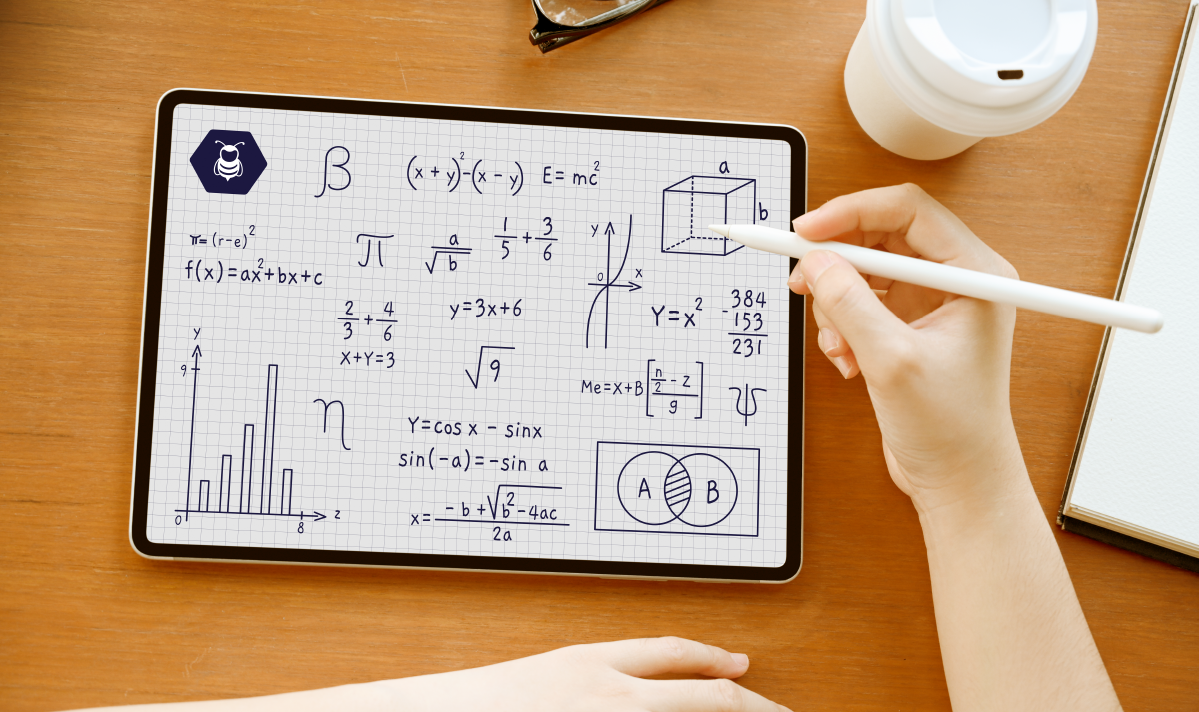 β
(x + y)²-(x - y)
E = mc²
a
b
π= (r-e)²
f(x) = ax²+bx+c
π
a
√b
1/5 + 3/6
y
0
x
2/3 + 4/6
X+Y=3
y=3x+6
Y=x²
-384
153
231
√9
Me=X+B[(n/2 - z)/g]
ψ
y
9
0
8
z
η
Y=cos x - sinx
sin(-a)=-sin a
x= (- b +√b²-4ac)/2a
A
B